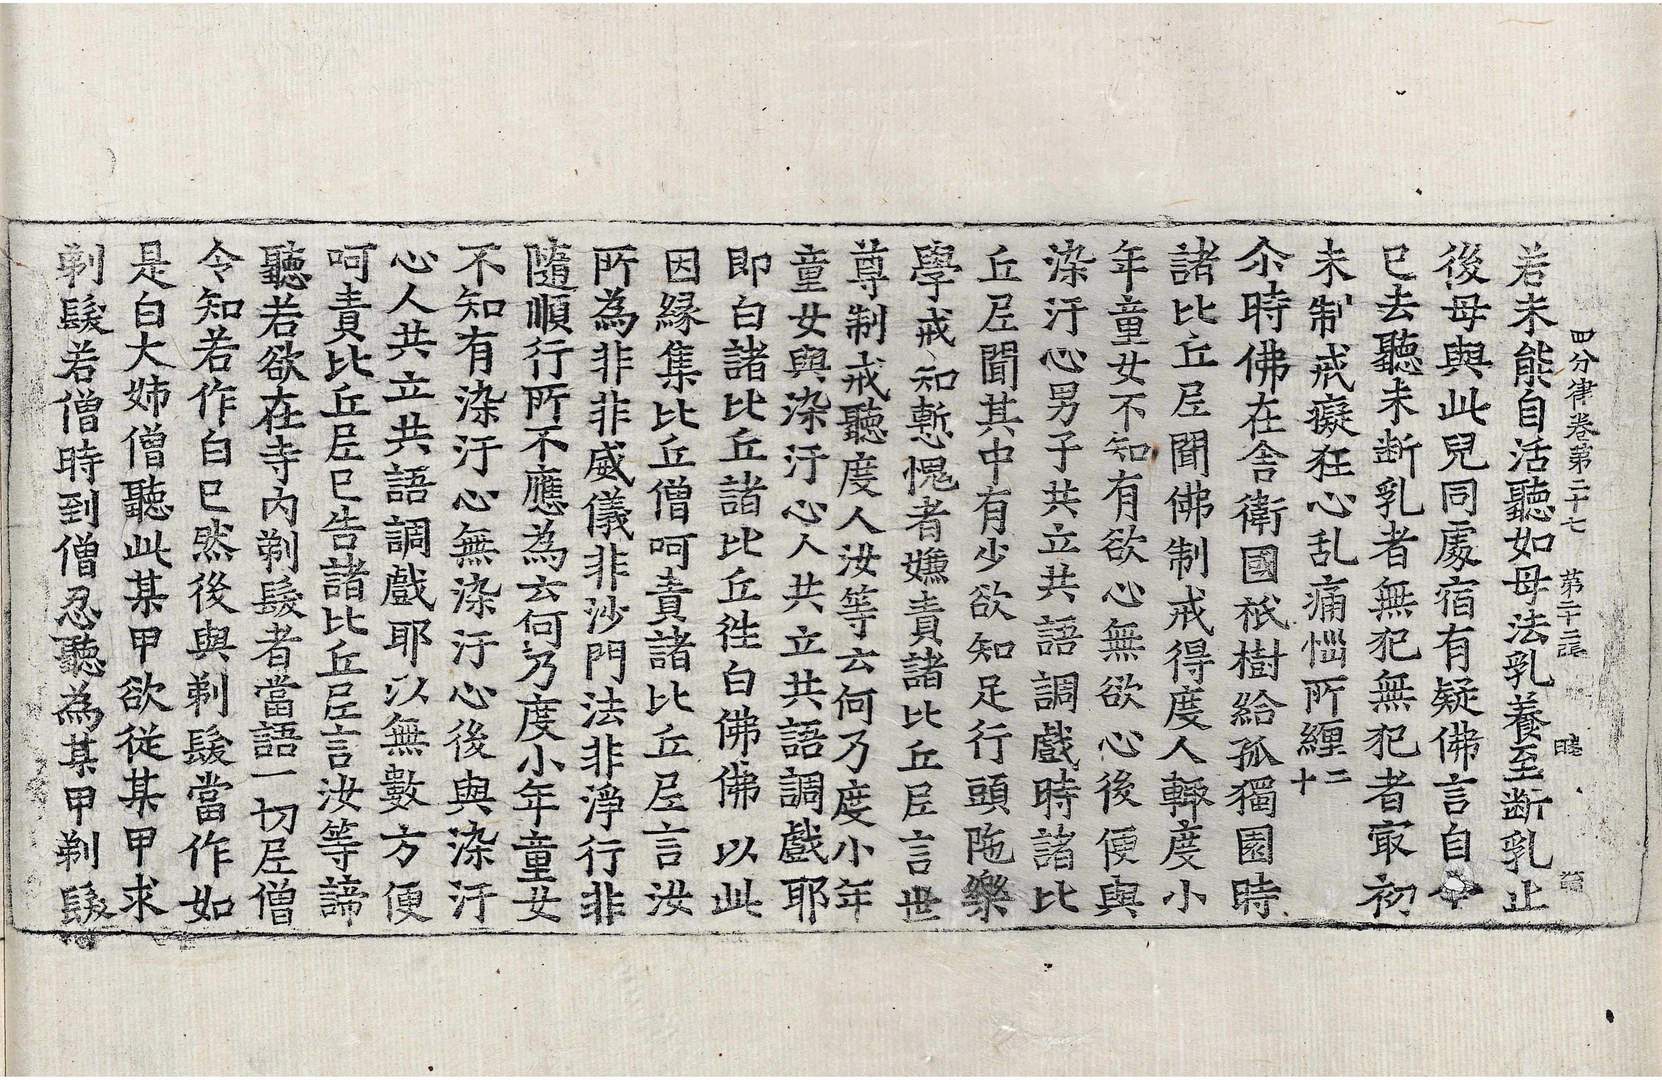 四分律卷第二十七 第二十三張 賭
若未能自活聽如母法乳養至断乳止
後母與此兒同處宿有疑佛言自今
已去聽未断乳者無犯無犯者冣初
未制戒癡狂心乱痛惱所纏二十
尒時佛在舍衛國祇樹給孤獨園時
諸比丘尼聞佛制戒得度人輙度小
年童女不知有欲心無欲心後便與
染汙心男子共立共語調戲時諸比
丘尼聞其中有少欲知足行頭陁樂
學戒知慙愧者嫌責諸比丘尼言世
尊制戒聽度人汝等云何乃度小年
童女與染汙心人共立共語調戲耶
即白諸比丘諸比丘徃白佛佛以此
因緣集比丘僧呵責諸比丘尼言汝
所為非非威儀非沙門法非淨行非
隨順行所不應為云何乃度小年童女
不知有染汙心無染汙心後與染汙
心人共立共語調戲耶以無數方便
呵責比丘尼已告諸比丘尼言汝等諦
聽若欲在寺內剃髮者當語一切尼僧
令知若作白已然後與剃髮當作如
是白大姉僧聽此某甲欲從某甲求
剃髮若僧時到僧忍聽為某甲剃髮